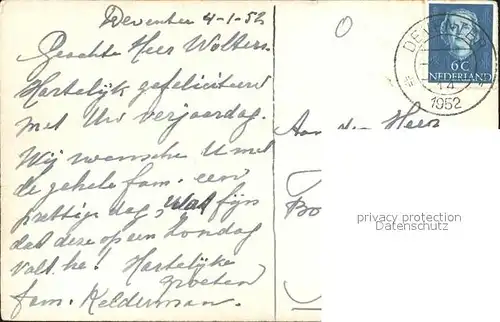 Deventer 4-1-52
Geachte Heer Wolters.
Hartelijk gefeliciteerd
met Uw verjaardag.
Wij wenschen U met
de gehele fam. een
prettige dag, Wat fijn
dat deze op een Zondag
valt hè! Hartelijke
groeten
fam. Kelderman.
O
DEVENTER
1952
6C
NEDERLAND
Aan den Heer
Bo
privacy protection
Datenschutz